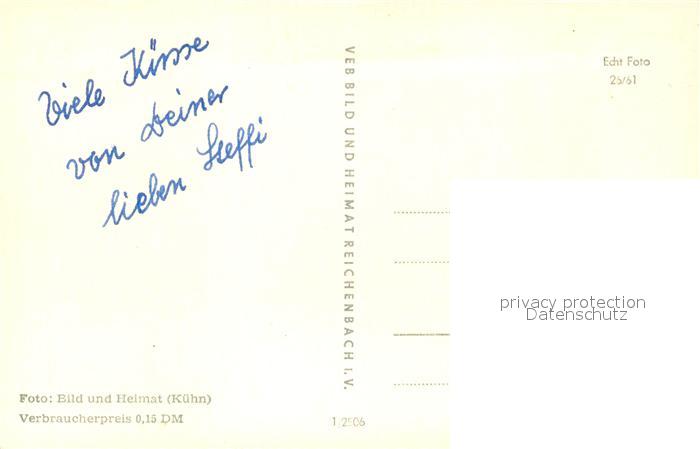 Viele Küsse
von Deiner
lieben Steffi
VEB BILD UND HEIMAT REICHENBACH I. V.
Echt Foto
25/61
privacy protection
Datenschutz
Foto: Bild und Heimat (Kühn)
Verbraucherpreis 0,15 DM
1/2506